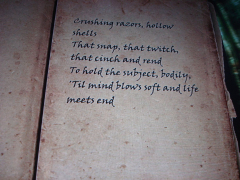 Crushing razors, hollow
shells
That snap, that twitch,
that cinch and rend
To hold the subject, bodily,
'Til mind blows soft and life
meets end